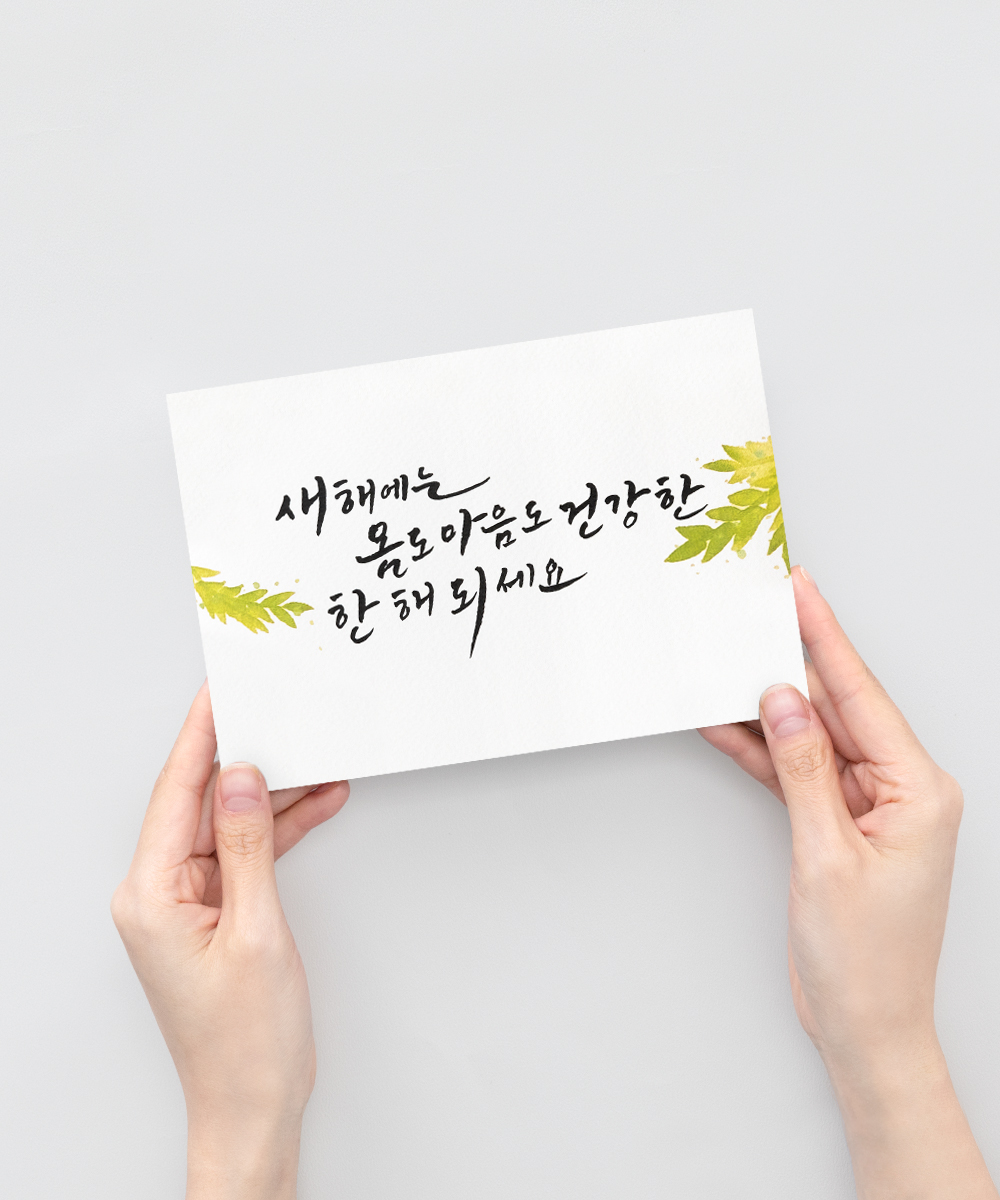 새해에는
몸도 마음도 건강한
한 해 되세요